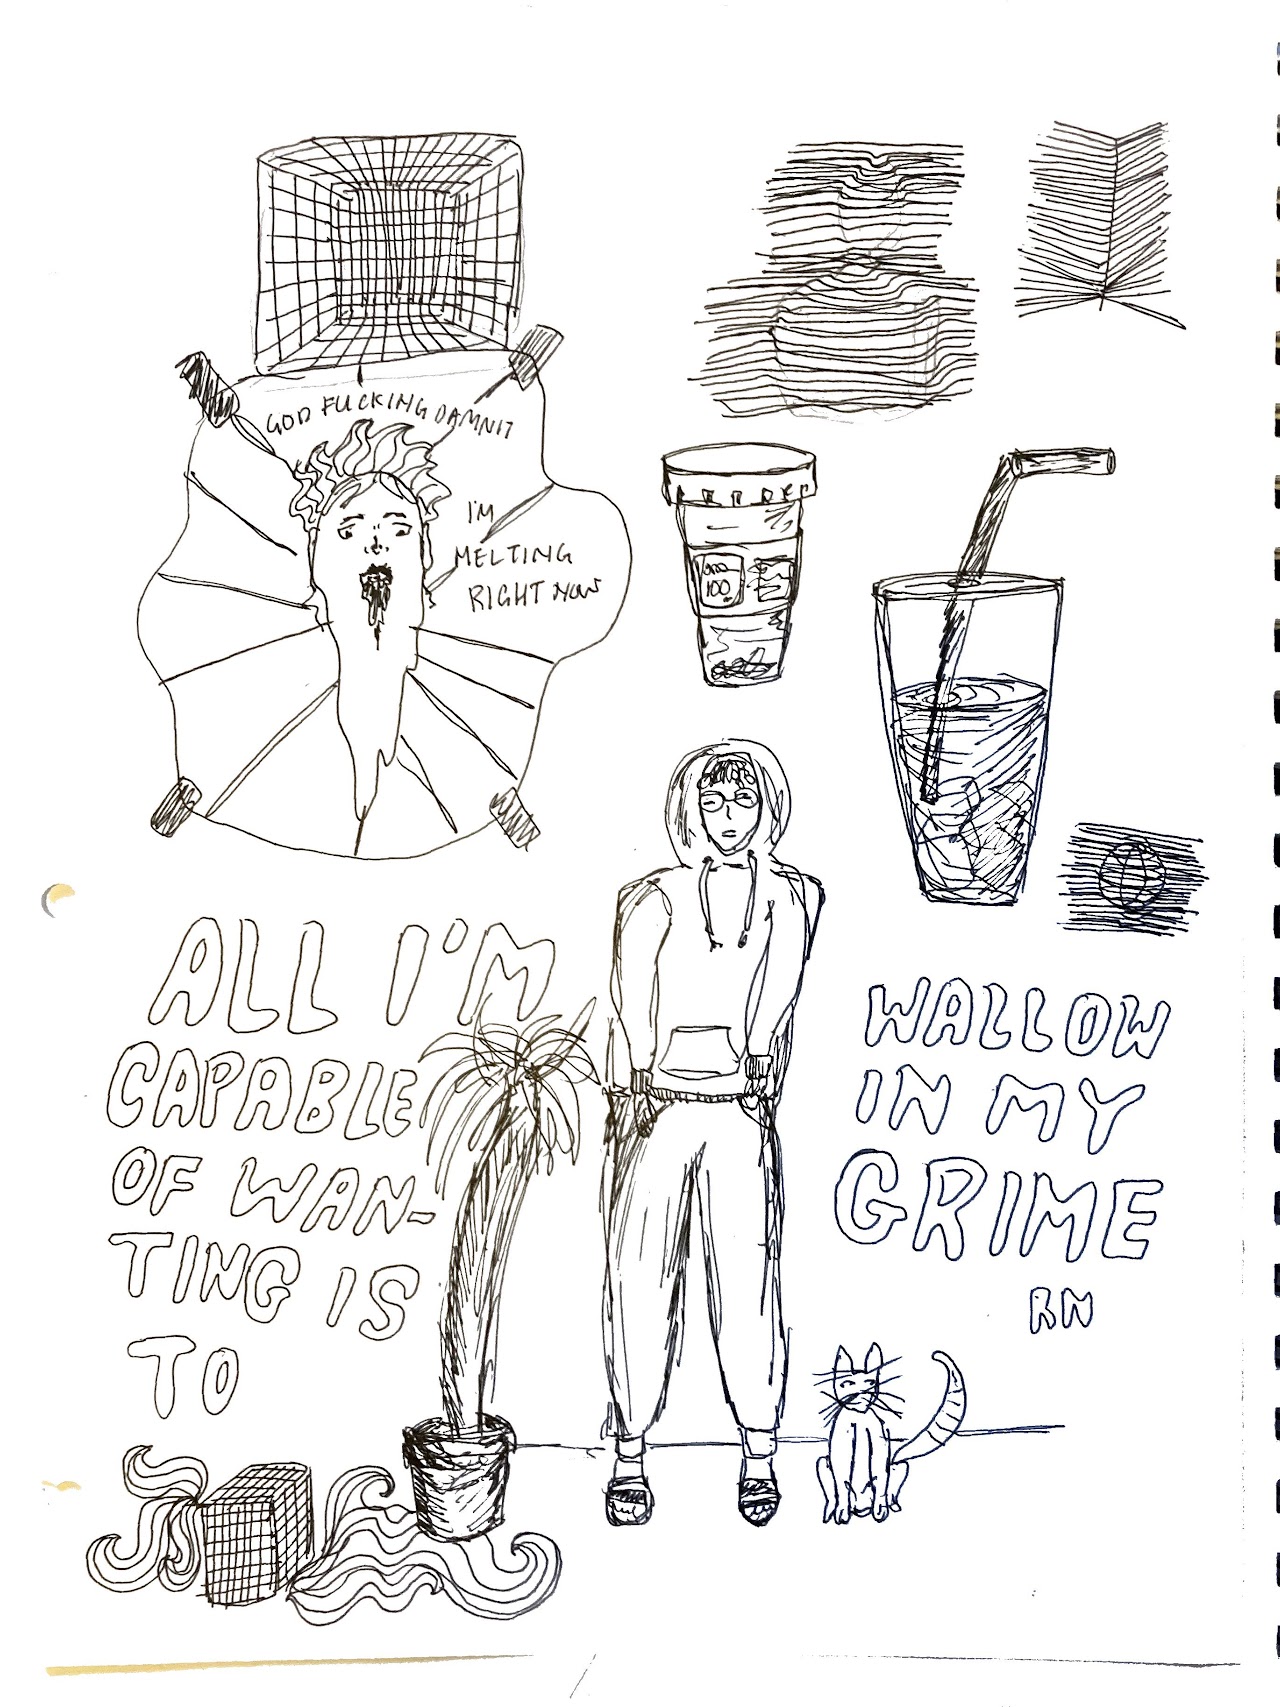 GOD FUCKING DAMNIT
I'M
MELTING
RIGHT NOW
100
ALL I'M
CAPABLE
OF WAN-
TING IS
TO
WALLOW
IN MY
GRIME
RN